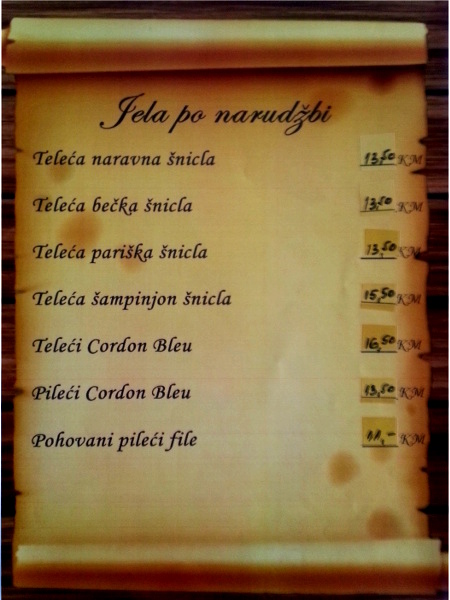 Jela po narudžbi
Teleća naravna šnicla 13,50 KM
Teleća bečka šnicla 13,50 KM
Teleća pariška šnicla 13,50 KM
Teleća šampinjon šnicla 15,50 KM
Teleći Cordon Bleu 16,50 KM
Pileći Cordon Bleu 13,50 KM
Pohovani pileći file 11,- KM